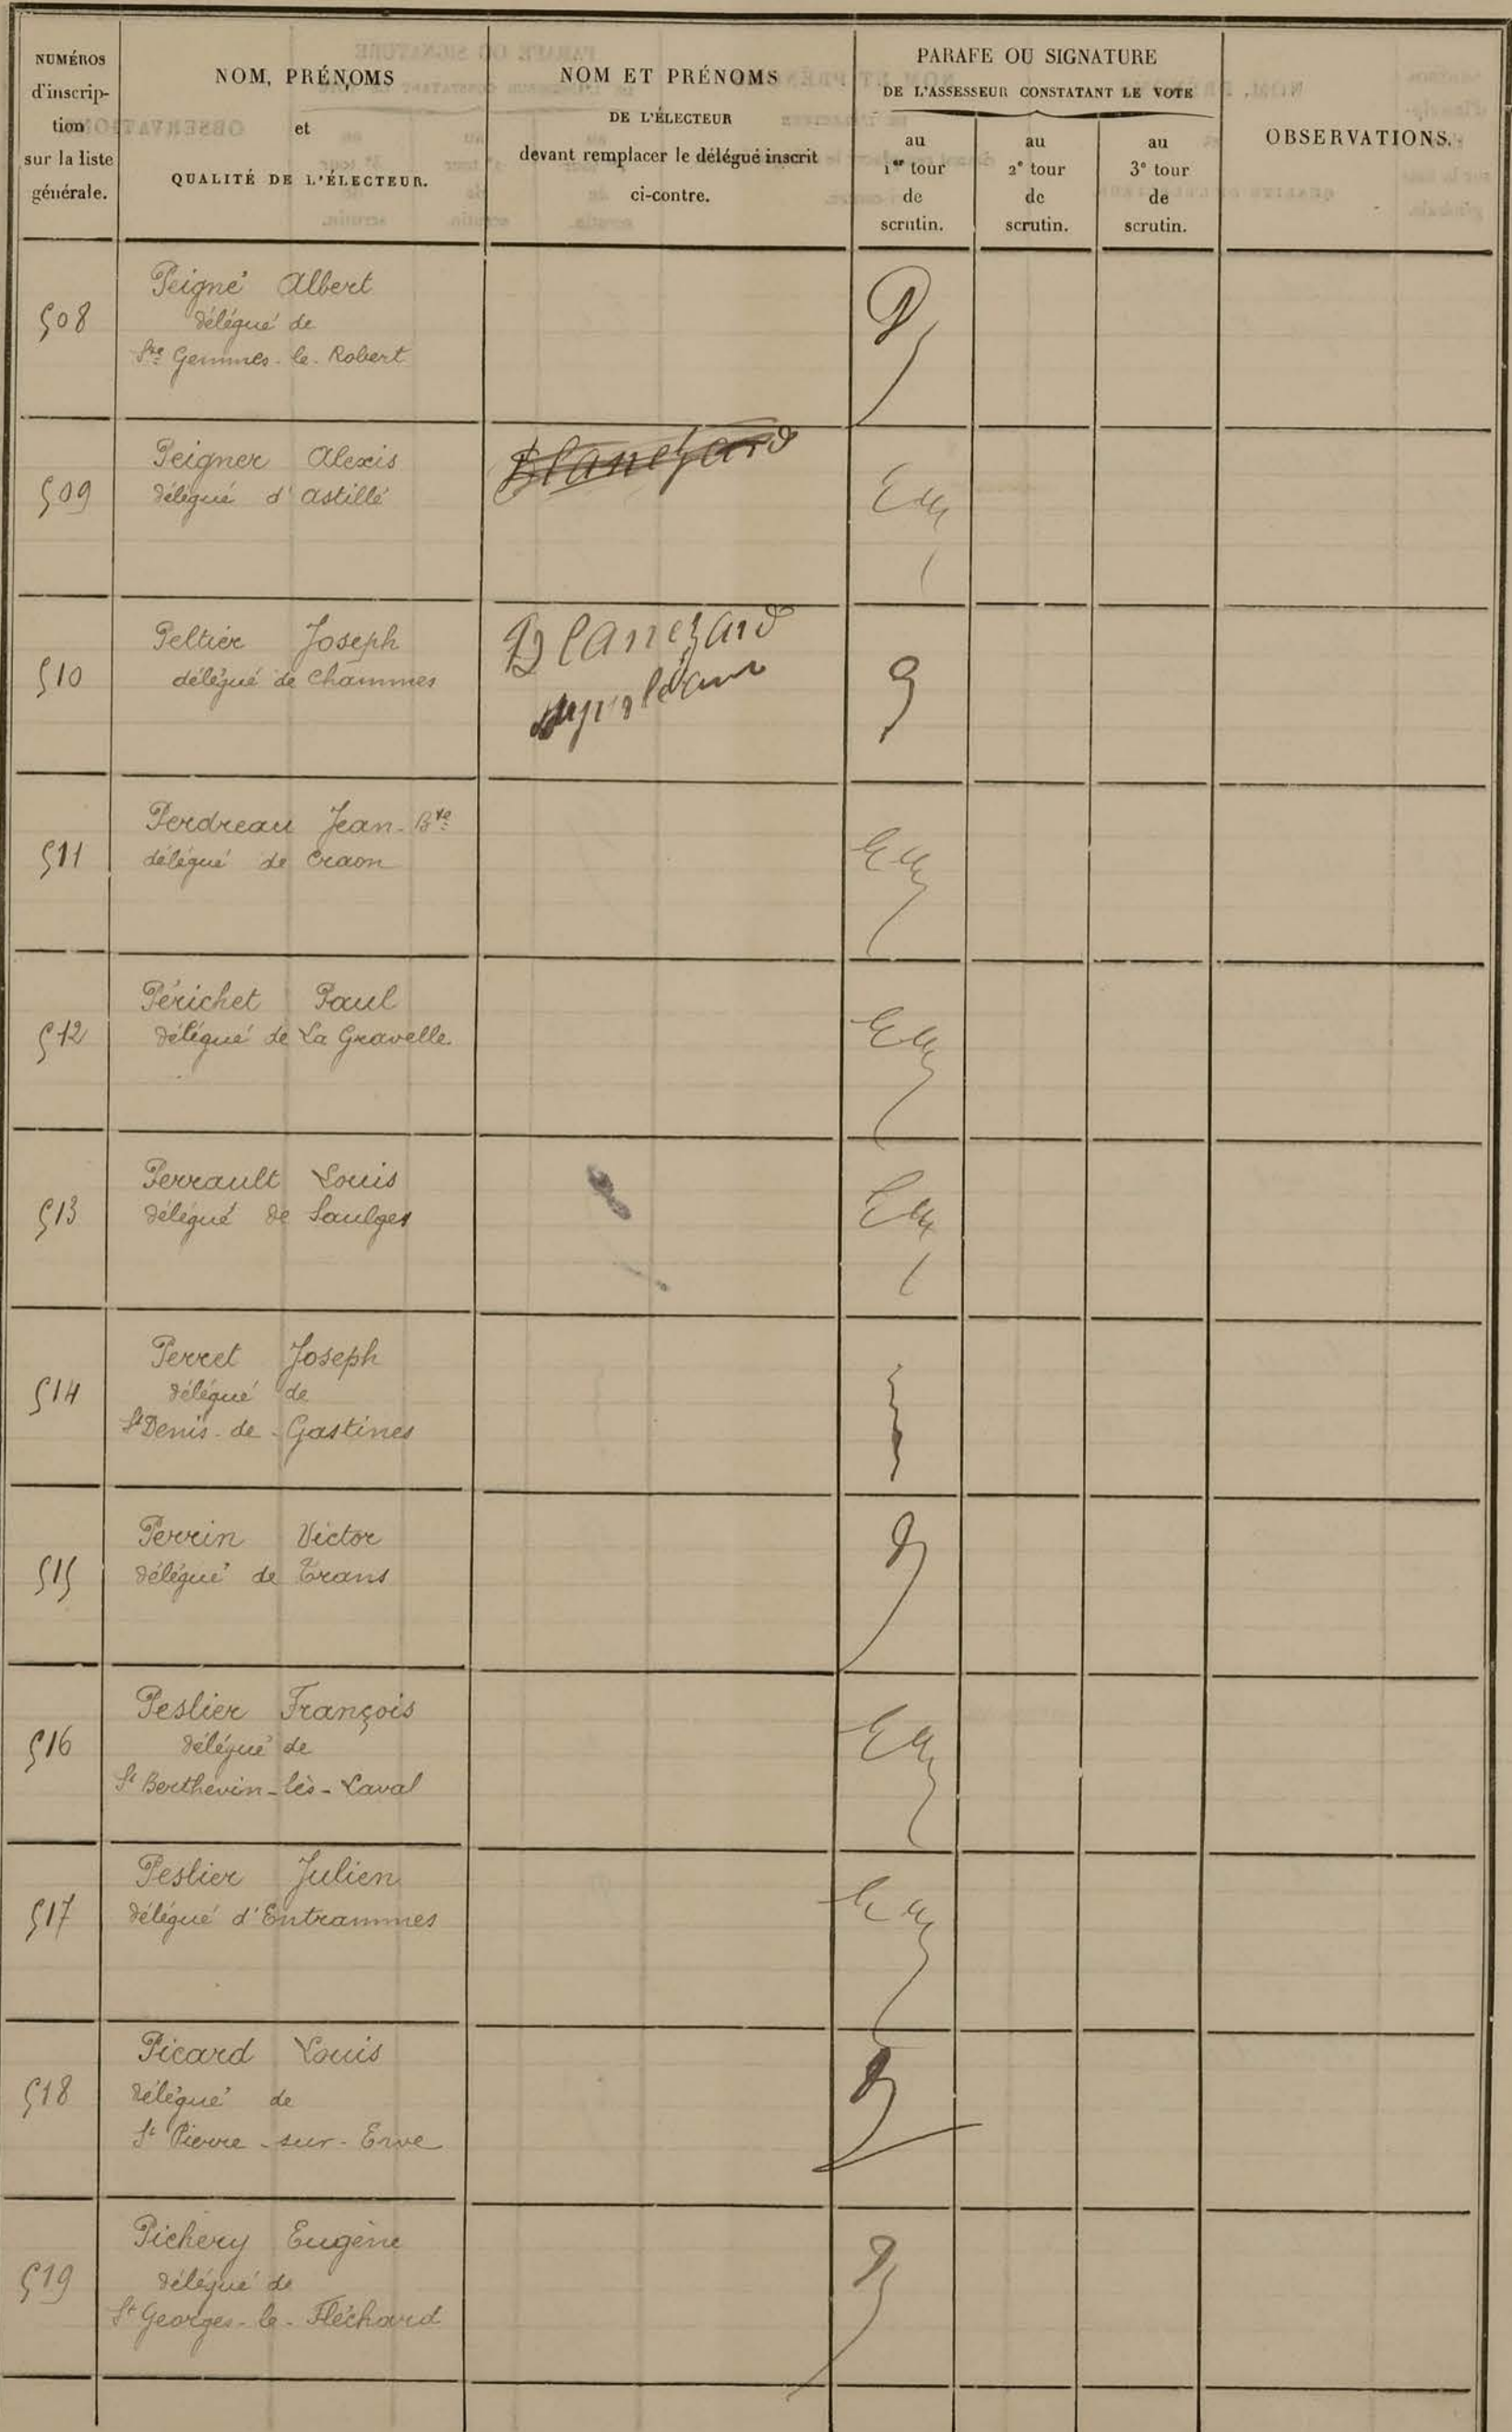 NUMÉROS
d'inscrip-
tion
sur la liste
générale.
NOM, PRÉNOMS
et
QUALITÉ DE L'ÉLECTEUR.
NOM ET PRÉNOMS
DE L'ÉLECTEUR
devant remplacer le délégué inscrit
ci-contre.
PARAFE OU SIGNATURE
DE L'ASSESSEUR CONSTATANT LE VOTE
au
1er tour
de
scrutin.
au
2e tour
de
scrutin.
au
3e tour
de
scrutin.
OBSERVATIONS.
508
Peigné Albert
délégué de
Ste Gemmes-le-Robert
509
Peigner Alexis
délégué d'Astillé
Blanchard
510
Peltier Joseph
délégué de Chammes
Blanchard
511
Perdreau Jean-Bte
délégué de Craon
512
Périchet Paul
délégué de La Gravelle
513
Perrault Louis
délégué de Saulges
514
Perret Joseph
délégué de
St Denis-de-Gastines
515
Perrin Victor
délégué de Trans
516
Peslier François
délégué de
St Berthevin-lès-Laval
517
Peslier Julien
délégué d'Entrammes
518
Picard Louis
délégué de
St Pierre-sur-Erve
519
Pichery Eugène
délégué de
St Georges-le-Fléchard